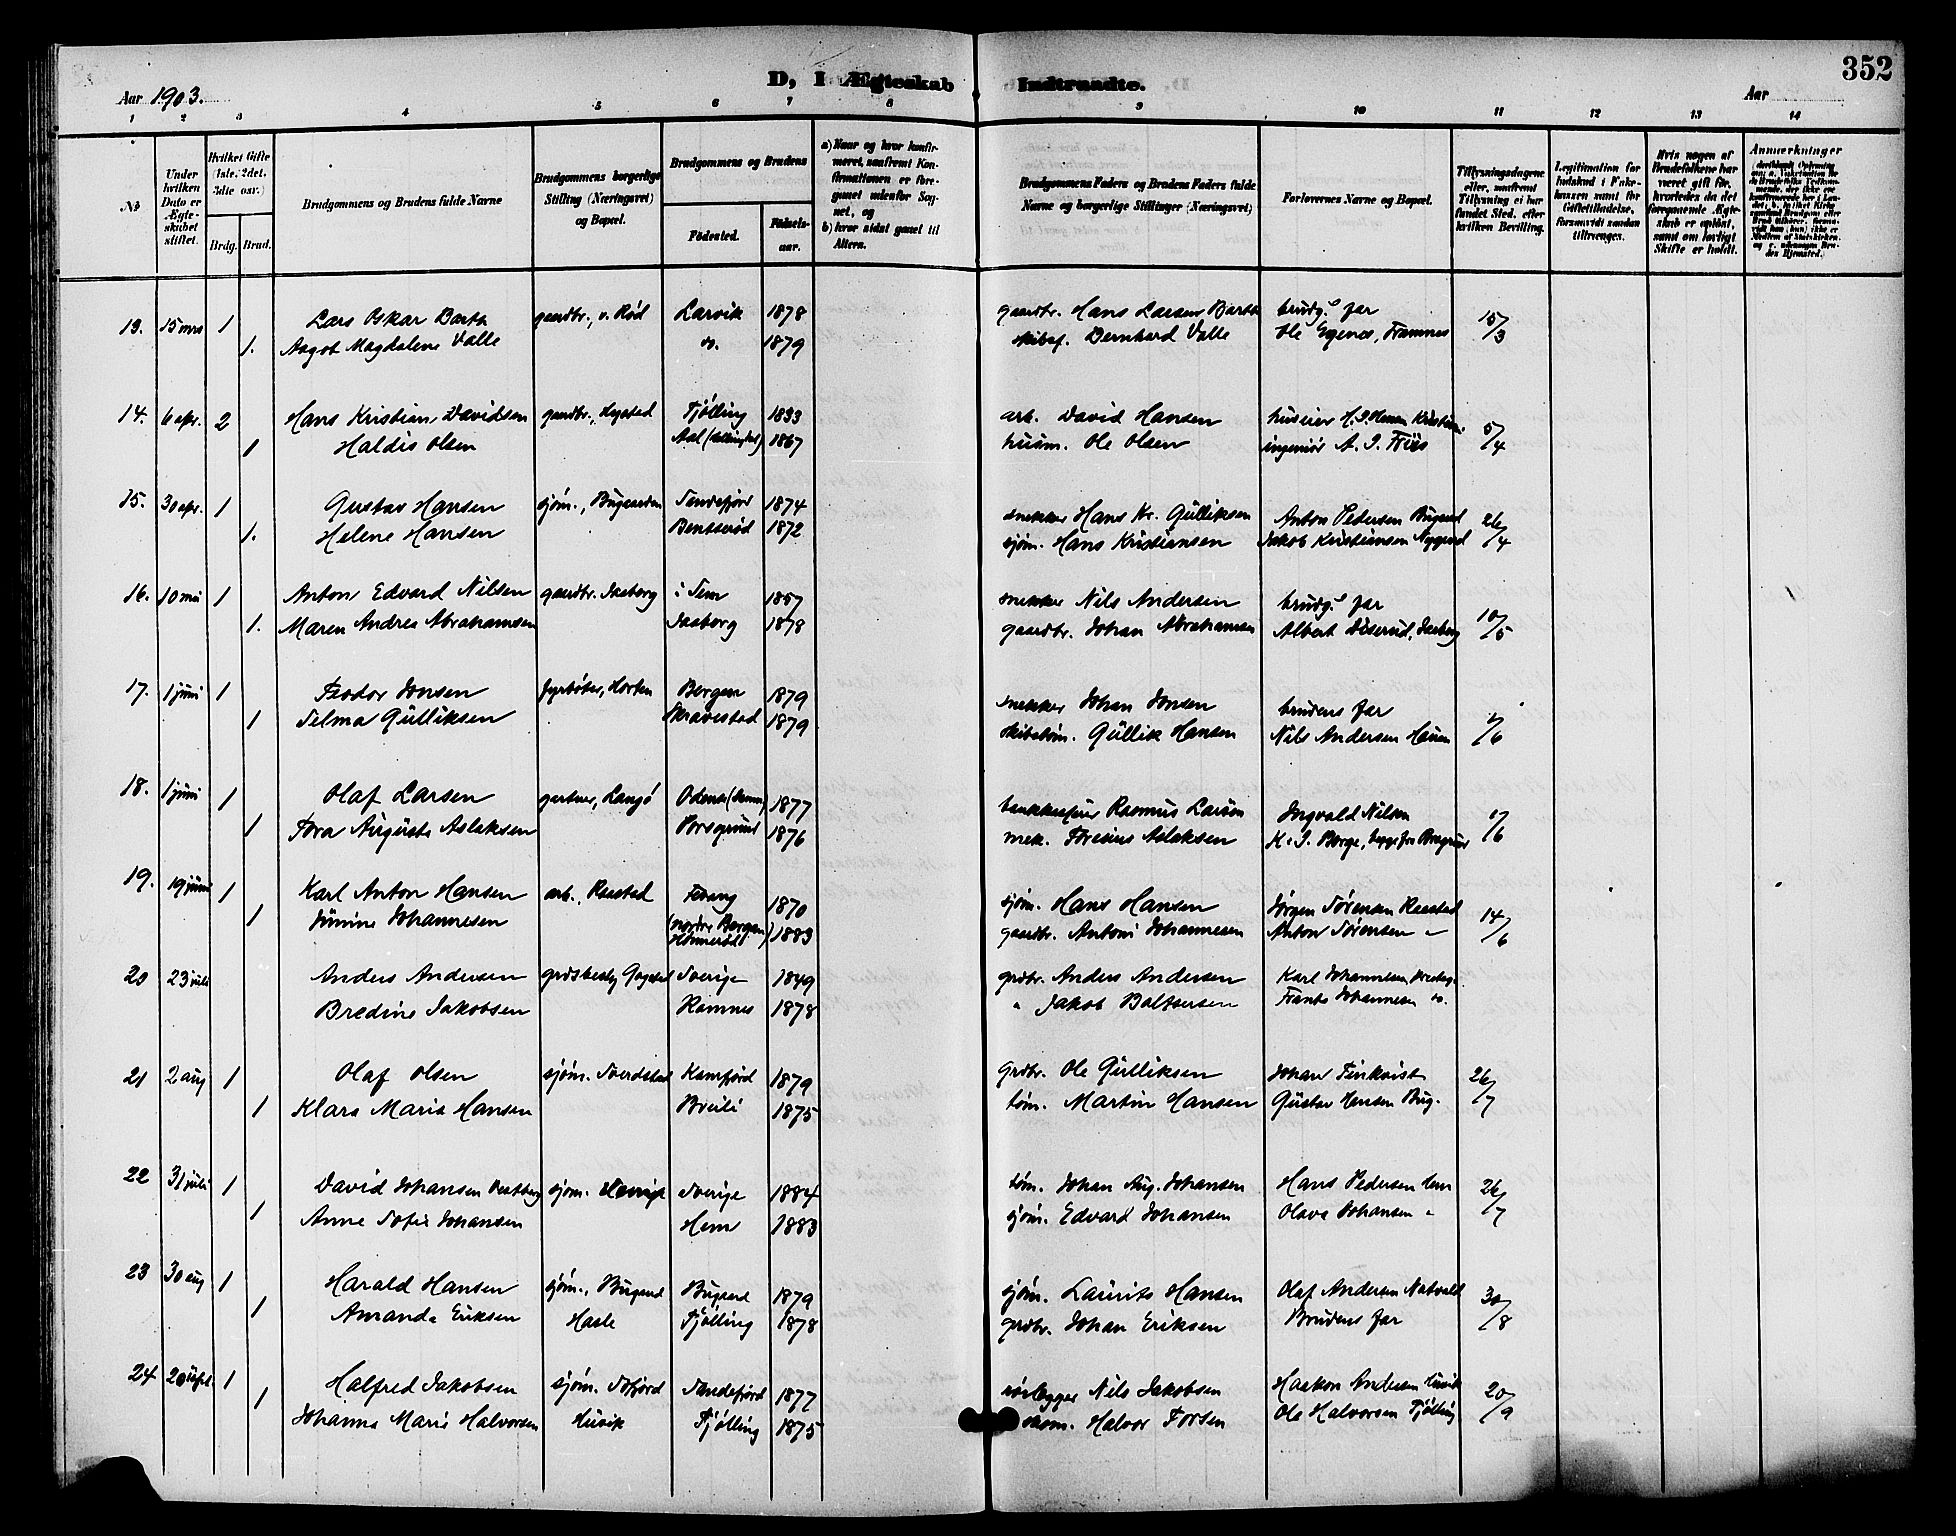 352
D, I Ægteskab Indtraadte.
Aar 1903.
Aar
1 2 3 4 5 6 7 8 9 10 11 12 13 14
№
Under hvilken Dato er Ægteskabet stiftet.
Hvilket Gifte (1ste, 2det, 3die osv.)
Brdg. Brud.
Brudgommens og Brudens fulde Navne
Brudgommens borgerlige Stilling (Næringsvei) og Bopæl.
Brudgommens og Brudens
Fødested.
Fødselsaar.
a) Naar og hvor konfirmeret, saafremt Konfirmationen er foregaaet udenfor Sognet, og
b) hvor sidst gaaet til Alters.
Brudgommens Faders og Brudens Faders fulde Navne og borgerlige Stillinger (Næringsvei)
Forlovernes Navne og Bopæl.
Tillysningsdagene eller, saafremt Tillysning ei har fundet Sted, efter hvilken Bevilling.
Legitimation for Indskud i Enkekassen samt for Giftetilladelse, forsaavidt saadan tiltrænges.
Hvis nogen af Brudefolkene har været gift før, hvorledes da det foregaaende Ægteskab er opløst, samt om lovligt Skifte er holdt.
Anmærkninger
13. 15 mrs 1 Lars Oskar Barth gaardbr., v. Rød Larvik 1878 gaardbr. Hans Larsen Barth brudg.s far 15/3
1. Aagot Magdalene Valle do. 1879 skibsf. Bernhard Valle Ole Egenes, Framnes
14. 6 apr. 2 Hans Kristian Davidsen gaardbr., Hystad Tjølling 1833 arb. David Hansen huseier 5/4
1 Haldis Olsen Aal (Hallingdal) 1867 husm. Ole Olsen ingeniør A. J. Friis
15. 30 apr. 1 Gustav Hansen sjøm., Bugaarden Sandefjord 1874 snekker Hans Kr. Gulliksen Anton Pedersen Bugard 26/4
1. Helene Hansen 1872 sjøm. Hans Kristiansen Jakob Kristiansen Nygard
16. 10 mai 1 Anton Edvard Nilsen gaardbr. i Sem 1857 snekker Nils Andersen brudg.s far 10/5
1. Maren Andrea Abrahamsen 1878 gaardbr. Johan Abrahamsen Albert
17. 1 juni 1 Teodor Jonsen fyrbøter, Horten Bergen 1879 snekker Johan Jonsen brudens far 1/6
1 Selma Gulliksen Skravestad 1879 skibstøm. Gullik Hansen Nils Andersen Hauan
18. 1 juni 1 Olaf Larsen gartner, Langø Odense 1877 Rasmus Larsen Ingvald Nilsen 1/6
1 Tora Augusta Aslaksen Porsgrund 1876 mek. Aslaksen K. J. Borge,
19. 19 juni 1 Karl Anton Hansen arb., Raastad Fevang 1870 sjøm. Hans Hansen Jørgen Sørensen Raastad 14/6
1 Junine Johannesen (nordre Bergan) 1883 gaardbr. Antoni Johannesen Anton Sørensen "
20 23 juli Anders Andersen Sverige 1849 grdbr. Anders Andersen Karl Johannesen
Bredine Jakobsen Ramnes 1878 " Jakob Baltsersen Frants Johannesen do.
21 2 aug 1 Olaf Olsen sjøm. Sverdstad Kamfjord 1879 grdbr. Ole Gulliksen Johan Finkvist 26/7
1 Klara Maria Hansen Breili 1875 tøm. Martin Hansen Gustav Hansen Bug.
22 31 juli 1 David Johansen sjøm. Sverige Sverige 1884 tøm. Johan Aug. Johansen Hans Pedersen Hem 26/7
1 Anne Sofie Johansen Hem 1883 sjøm. Edvard Johansen Olava Johansen "
23 30 aug 1 Harald Hansen sjøm., Bugard Bugard 1879 sjøm. Laurits Hansen Olaf Andersen Natvald 30/8
1 Amanda Eriksen Hasle Tjølling 1878 grdbr. Johan Eriksen Brudens far
24 20 sept. 1 Halfred Jakobsen sjøm. Sofjord Sandefjord 1877 rørlegger Nils Jakobsen Haakon Andersen Husvik 20/9
1 Johanna Marie Halvorsen Husvik Tjølling 1875 skom. Halvor Torsen Ole Halvorsen Tjølling